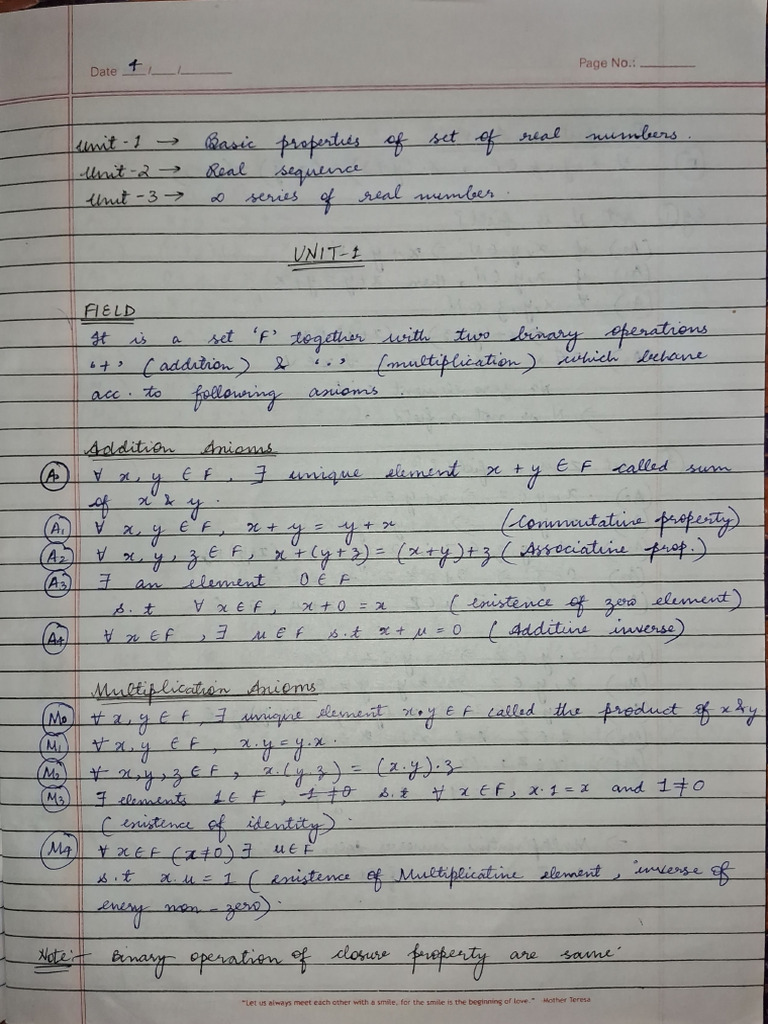 Date 4/__/____ Page No.: ______
Unit-1 → Basic properties of set of real numbers.
Unit-2 → Real sequence
Unit-3 → ∞ series of real number.
UNIT-1
FIELD
It is a set 'F' together with two binary operations
'+' (addition) & '.' (multiplication) which behave
acc. to following axioms.
Addition Axioms
A0 ∀ x, y ∈ F, ∃ unique element x + y ∈ F called sum
of x & y.
A1 ∀ x, y ∈ F, x + y = y + x (Commutative property)
A2 ∀ x, y, z ∈ F, x+(y+z) = (x+y)+z (Associative prop.)
A3 ∃ an element 0 ∈ F
s.t ∀ x ∈ F, x + 0 = x (existence of zero element)
A4 ∀ x ∈ F, ∃ u ∈ F s.t x + u = 0 (Additive inverse)
Multiplication Axioms
M0 ∀ x, y ∈ F, ∃ unique element x.y ∈ F called the product of x & y
M1 ∀ x, y ∈ F, x.y = y.x.
M2 ∀ x, y, z ∈ F, x.(y.z) = (x.y).z
M3 ∃ elements 1 ∈ F, 1≠0 s.t ∀ x ∈ F, x.1 = x and 1 ≠ 0
(existence of identity).
M4 ∀ x ∈ F (x≠0) ∃ u ∈ F
s.t x.u = 1 (existence of Multiplicative element, inverse of
every non-zero).
Note:- Binary operation of closure property are same.
"Let us always meet each other with a smile, for the smile is the beginning of love." -Mother Teresa